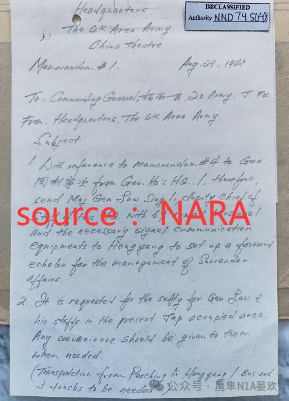 Headquarters
DECLASSIFIED
Authority NND
The 4th Area Army
China Theatre
Memorandum #1 Aug. 25. 1945
To: Commanding General, 20 Army, J. For.
From: Headquarters, The 4th Area Army
Subject
1. With reference to Memorandum #4 to Gen
from Gen Ho's HQ. I, therefore,
send Maj Gen deputy chief of
source : NARA
and the necessary signal communication
equipments to Hengyang to set up a forward
echelon for the management of Surrender
affairs.
2. It is requested for the safety for Gen &
his staffs in the present Jap occupied area.
Any convenience should be given to them
when needed.
(Transportation from to Hengyang / Bus and
3 trucks to be needed
公众号: